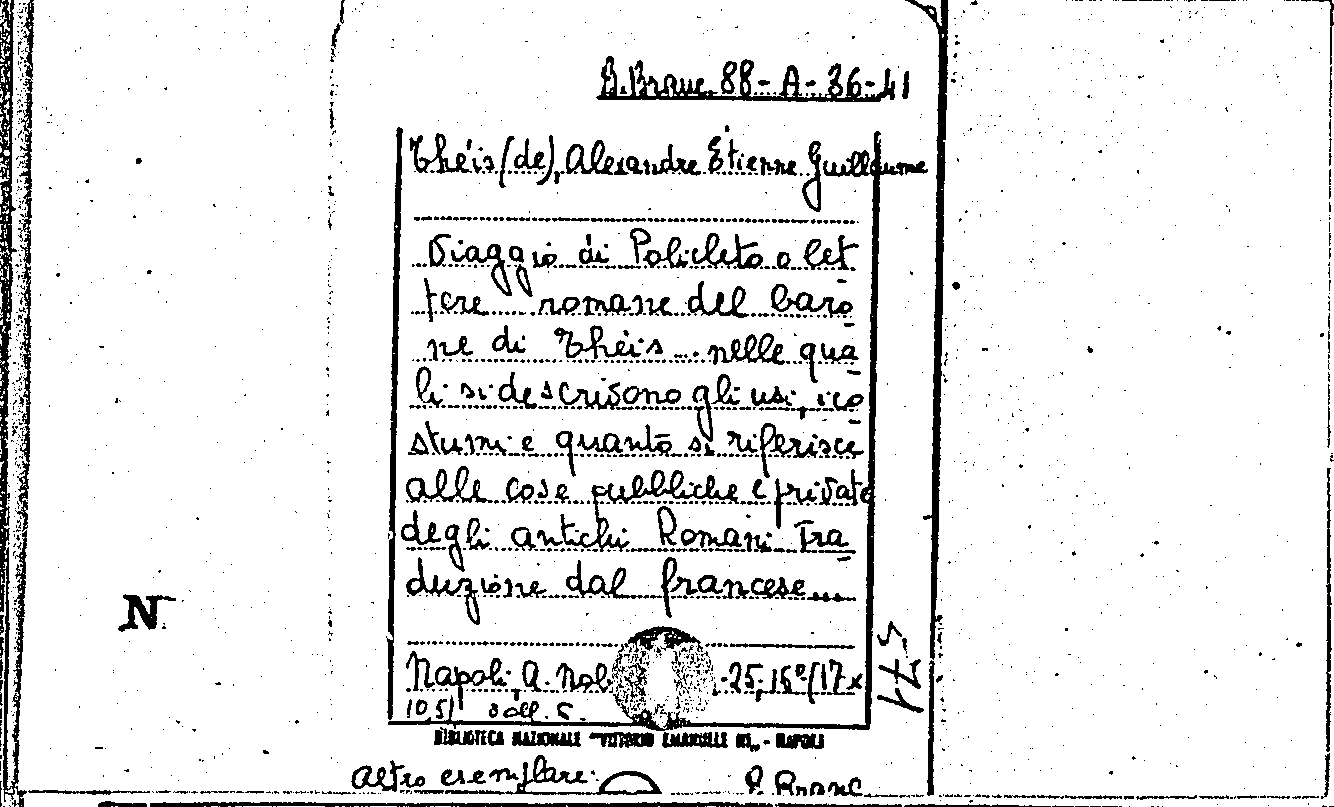 B. Branc. 88-A-36-41
Théis (de), Alexandre Étienne Guillaume
Viaggio di Policleto o let
tere romane del baro
ne di Théis... nelle qua
li si descrivono gli usi, i co
stumi e quanto si riferisce
alle cose pubbliche e private
degli antichi Romani. Tra
duzione dal francese...
Napoli, A. Nob -25, 16°/17x
10,5/ voll. 5.
571
N
BIBLIOTECA NAZIONALE "VITTORIO EMANUELE III" - NAPOLI
Altro esemplare: B. Branc